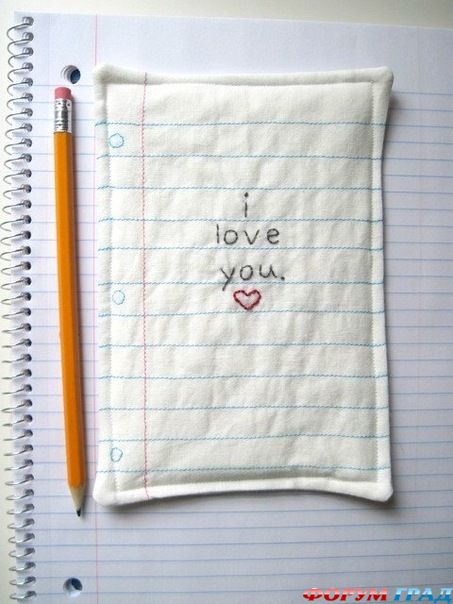 i
love
you.
ФОРУМ ГРАД